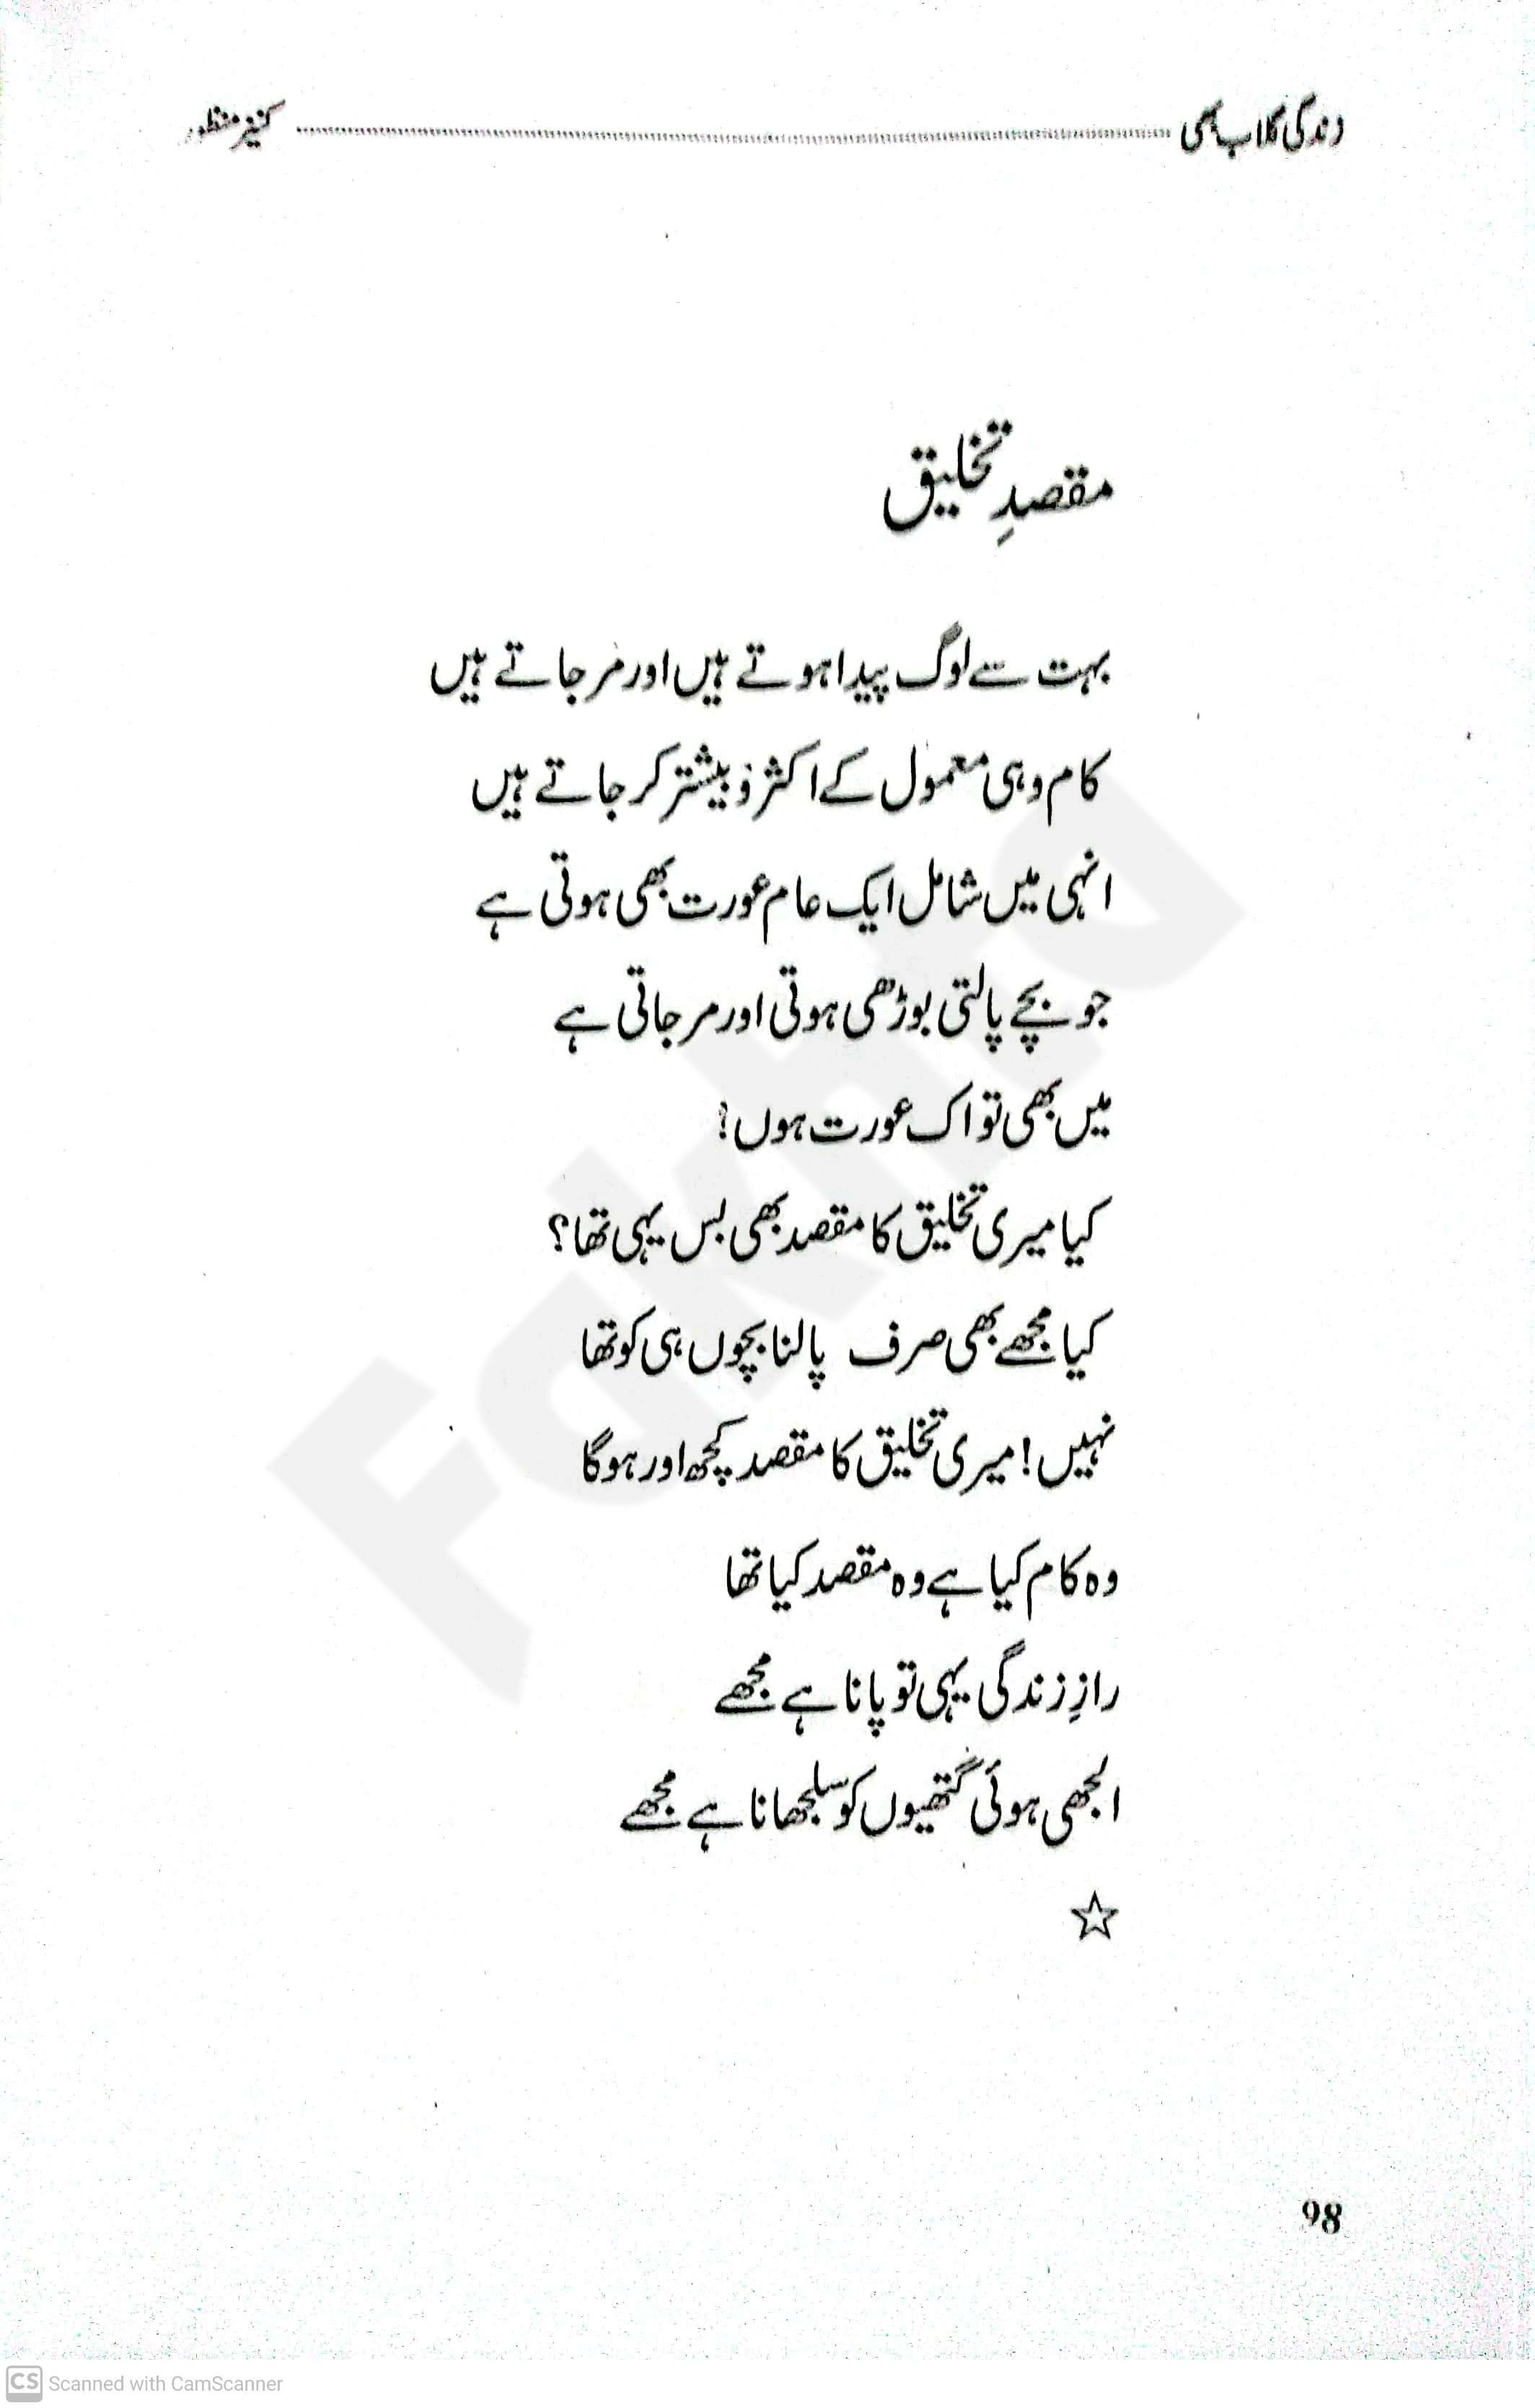 زندگی گلاب سی ........ کنیز منظور
مقصدِ تخلیق
بہت سے لوگ پیدا ہوتے ہیں اور مر جاتے ہیں
کام وہی معمول کے اکثر و بیشتر کر جاتے ہیں
انہی میں شامل ایک عام عورت بھی ہوتی ہے
جو بچے پالتی بوڑھی ہوتی اور مر جاتی ہے
میں بھی تو اک عورت ہوں!
کیا میری تخلیق کا مقصد بھی بس یہی تھا؟
کیا مجھے بھی صرف پالنا بچوں ہی کو تھا
نہیں! میری تخلیق کا مقصد کچھ اور ہوگا
وہ کام کیا ہے وہ مقصد کیا تھا
رازِ زندگی یہی تو پانا ہے مجھے
الجھی ہوئی گتھیوں کو سلجھانا ہے مجھے
☆
98
Fakhta
CS Scanned with CamScanner